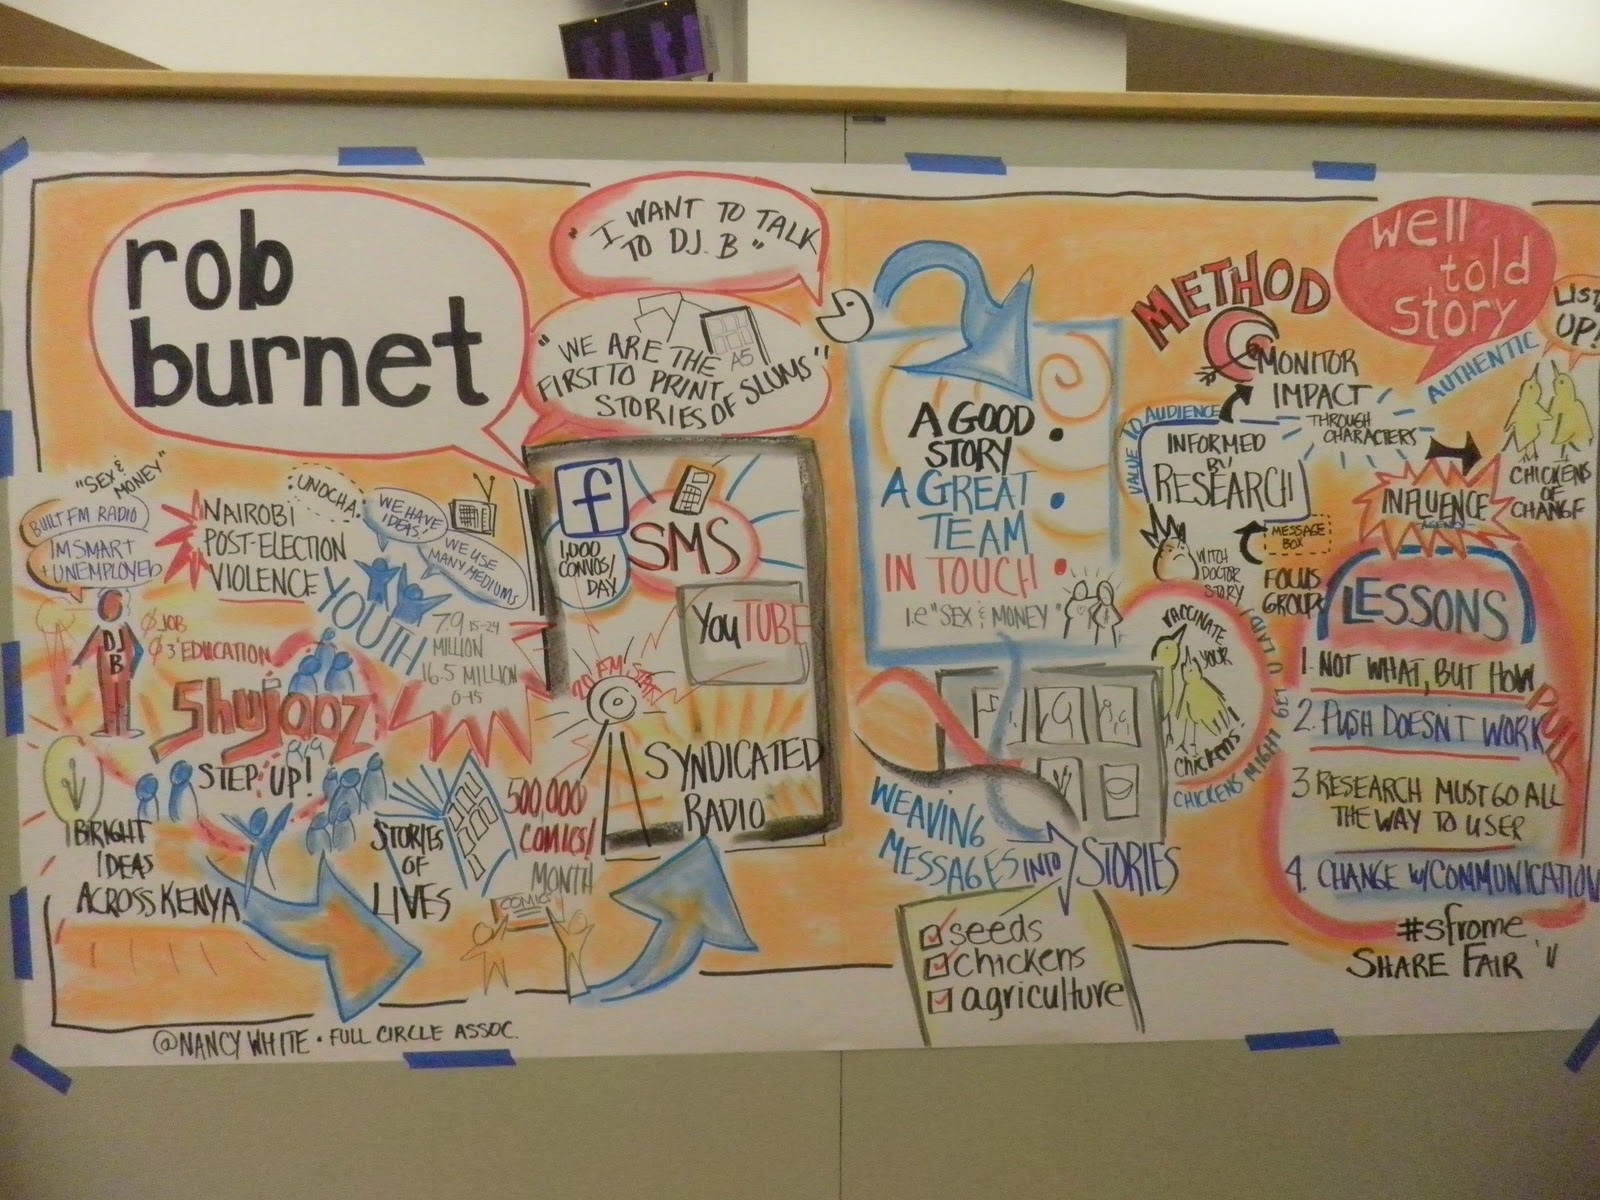 rob
burnet
"I WANT TO TALK
TO DJ. B"
"WE ARE THE
FIRST TO PRINT
STORIES OF SLUMS"
A5
"SEX &
MONEY"
BUILT FM RADIO
I'M SMART
+ UNEMPLOYED
DJ
B
Ø JOB
Ø 3° EDUCATION
NAIROBI
POST-ELECTION
VIOLENCE
UNOCHA
WE HAVE
IDEAS!
WE USE
MANY MEDIUMS
YOUTH
7.9 15-24
MILLION
16.5 MILLION
0-15
Shujaaz
STEP UP!
BRIGHT
IDEAS
ACROSS KENYA
STORIES
OF
LIVES
500,000
COMICS/
MONTH
COMICS
f
1,000
CONVOS/
DAY
SMS
YouTUBE
20 FM STAT
SYNDICATED
RADIO
A GOOD
STORY
A GREAT
TEAM
IN TOUCH
i.e "SEX & MONEY"
WEAVING
MESSAGES INTO
STORIES
seeds
chickens
agriculture
METHOD
MONITOR
IMPACT
THROUGH
CHARACTERS
VALUE TO AUDIENCE
INFORMED
BY
RESEARCH
MESSAGE
BOX
FOCUS
GROUPS
WITCH
DOCTOR
STORY
VACCINATE
YOUR
chickens!
CHICKENS MIGHT GET U LAID
well
told
story
AUTHENTIC
LIST
UP!
CHICKENS
OF
CHANGE
INFLUENCE
LESSONS
1. NOT WHAT, BUT HOW
2. PUSH DOESN'T WORK
PULL
3 RESEARCH MUST GO ALL
THE WAY TO USER
4. CHANGE w/COMMUNICATION
#sfrome
SHARE FAIR '11
@NANCYWHITE • FULL CIRCLE ASSOC.